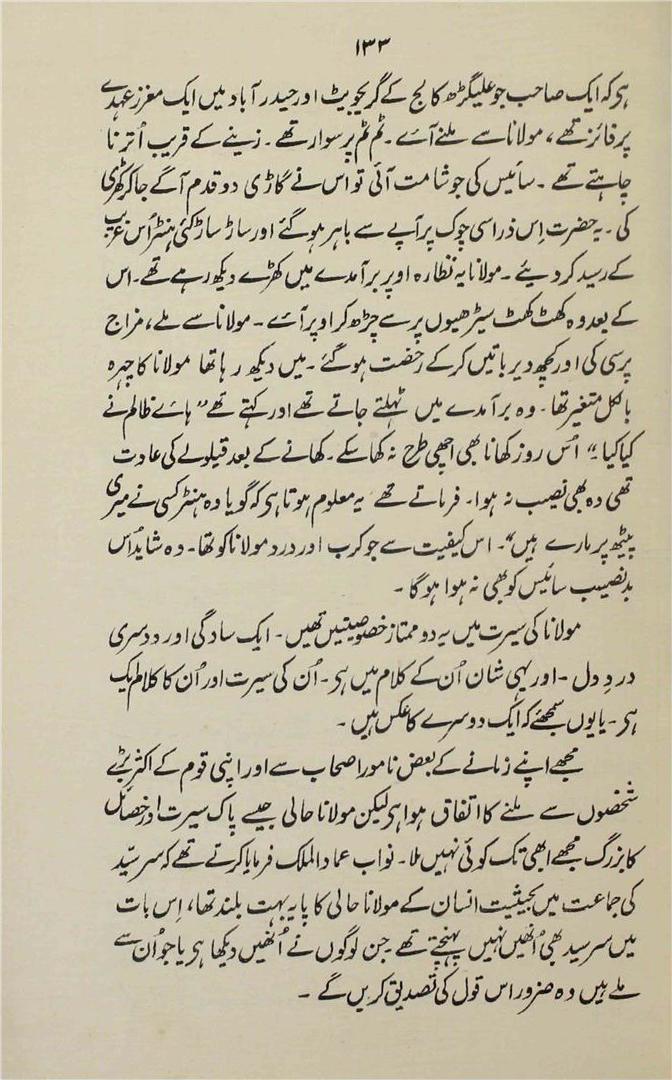 ۱۳۳
ہی کہ ایک صاحب جو علیگڑھ کالج کے گریجویٹ اور حیدرآباد میں ایک معزز عہدے
پر فائز تھے، مولانا سے ملنے آئے۔ ٹم ٹم پر سوار تھے۔ زینے کے قریب اُترنا
چاہتے تھے۔ سائیس کی جو شامت آئی تو اس نے گاڑی دو قدم آگے جا کر کھڑی
کی۔ یہ حضرت اِس ذرا سی چوک پر آپے سے باہر ہو گئے اور ساڑ ساڑ کئی ہنٹر اُس غریب
کے رسید کر دیئے۔ مولانا یہ نظارہ اوپر برآمدے میں کھڑے دیکھ رہے تھے۔ اس
کے بعد وہ کھٹ کھٹ سیڑھیوں پر سے چڑھ کر اوپر آئے۔ مولانا سے ملے، مزاج
پرسی کی اور کچھ دیر باتیں کر کے رخصت ہو گئے۔ میں دیکھ رہا تھا مولانا کا چہرہ
بالکل متغیر تھا۔ وہ برآمدے میں ٹہلتے جاتے تھے اور کہتے تھے ”ہائے ظالم نے
کیا کیا۔“ اُس روز کھانا بھی اچھی طرح نہ کھا سکے۔ کھانے کے بعد قیلولے کی عادت
تھی وہ بھی نصیب نہ ہوا۔ فرماتے تھے ”یہ معلوم ہوتا ہی کہ گویا وہ ہنٹر کسی نے میری
پیٹھ پر مارے ہیں“۔ اس کیفیت سے جو کرب اور درد مولانا کو تھا۔ وہ شاید اُس
بدنصیب سائیس کو بھی نہ ہوا ہو گا۔
مولانا کی سیرت میں یہ دو ممتاز خصوصیتیں تھیں۔ ایک سادگی اور دوسری
دردِ دل۔ اور یہی شان اُن کے کلام میں ہی۔ اُن کی سیرت اور اُن کا کلام ایک
ہی۔ یا یوں سمجھئے کہ ایک دوسرے کا عکس ہیں۔
مجھے اپنے زمانے کے بعض نامور اصحاب سے اور اپنی قوم کے اکثر بڑے
شخصوں سے ملنے کا اتفاق ہوا ہی لیکن مولانا حالی جیسے پاک سیرت اور خصائل
کا بزرگ مجھے ابھی تک کوئی نہیں ملا۔ نواب عماد الملک فرمایا کرتے تھے کہ سر سیّد
کی جماعت میں بحیثیت انسان کے مولانا حالی کا پایہ بہت بلند تھا، اِس بات
میں سر سید بھی اُنھیں نہیں پہنچتے تھے۔ جن لوگوں نے اُنھیں دیکھا ہی یا جو اُن سے
ملے ہیں وہ ضرور اس قول کی تصدیق کریں گے۔